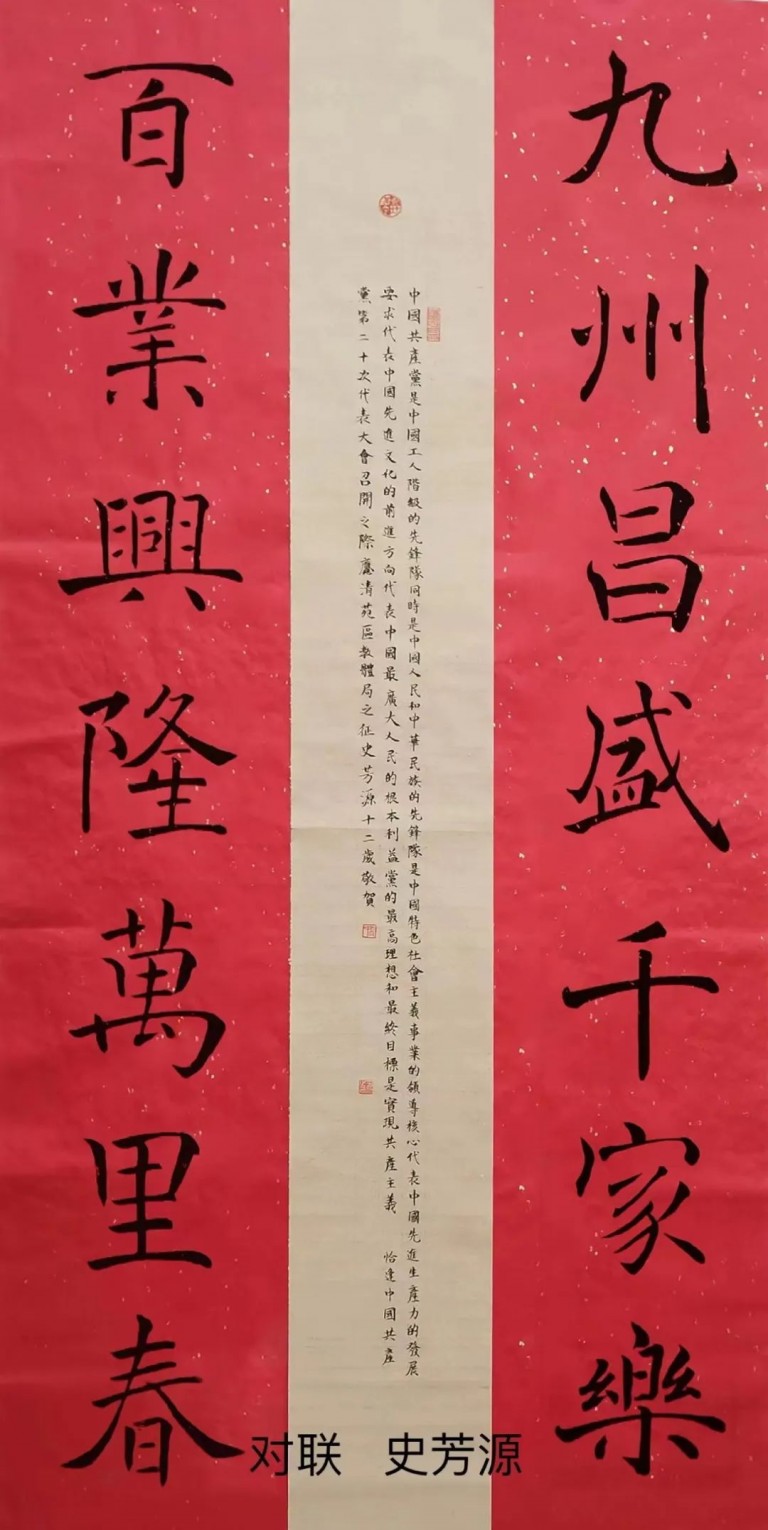 九州昌盛千家樂
中國共產黨是中國工人階級的先鋒隊同時是中國人民和中華民族的先鋒隊是中國特色社會主義事業的領導核心代表中國先進生產力的發展
要求代表中國先進文化的前進方向代表中國最廣大人民的根本利益黨的最高理想和最終目標是實現共產主義 恰逢中國共產
黨第二十次代表大會召開之際應清苑區教體局之征史芳源十二歲敬賀
百業興隆萬里春
对联 史芳源